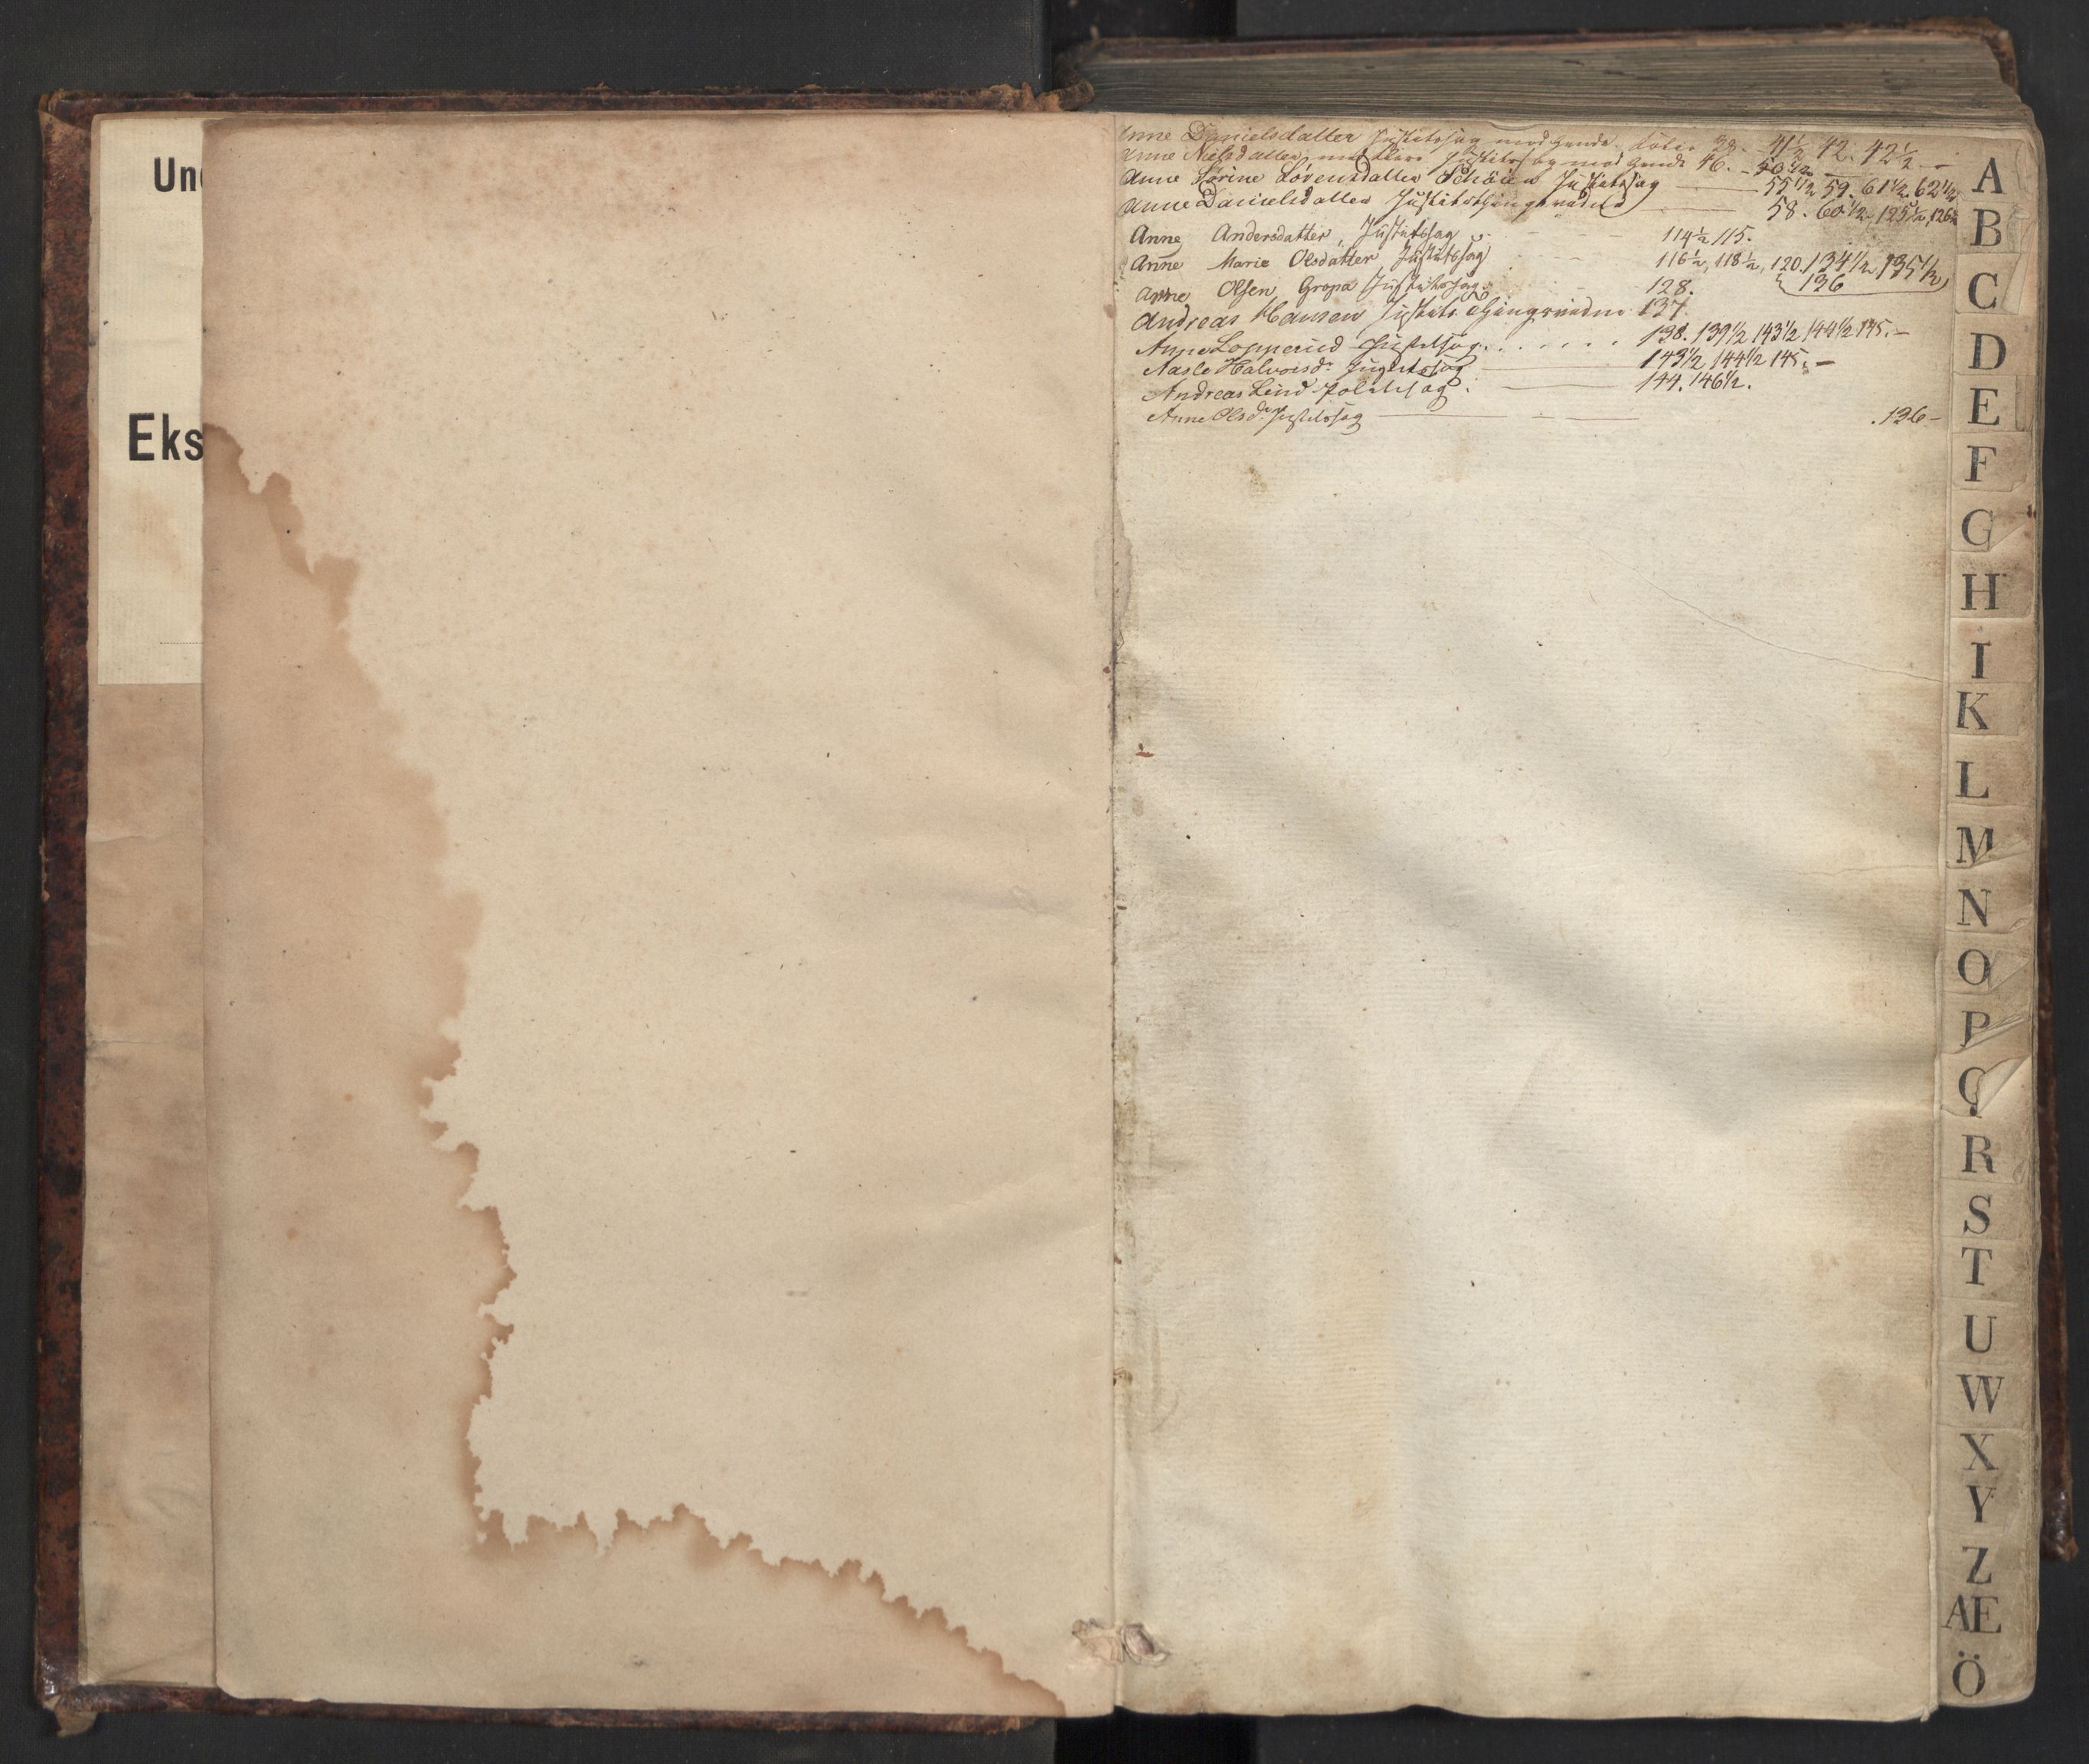 Un
Eks
Anne Danielsdatter Justitssag mod hende 28. 41½ 42. 42½ –
Anne Nielsdatter med flere Justitssag mod hende 46. – 50½ –
Anne Sørine Lorentzdatter Schöien Justitssag — 55½ 59. 61½ 62½
Anne Danielsdatter Justits Thingsvidne — 58. 60½, 125½, 126½
Anne Andersdatter, Justitssag 114½ 115.
Anne Marie Olsdatter Justitssag 116½, 118½, 120. 134½ 135½
136
Anne Olsen Gropa Justitssag 128.
Andreas Hansen Justits Thingsvidne 137.
Anne Lopperud Justitssag . . . . . . 138. 139½ 143½ 144½ 145. –
Aasle Halvorsdr Justitssag — 143½ 144½ 145. –
Andreas Lind Politissag. — 144. 146½.
Anne Olsdr Justitssag — .136 –
A
B
C
D
E
F
G
H
I
K
L
M
N
O
P
Q
R
S
T
U
W
X
Y
Z
Æ
Ö